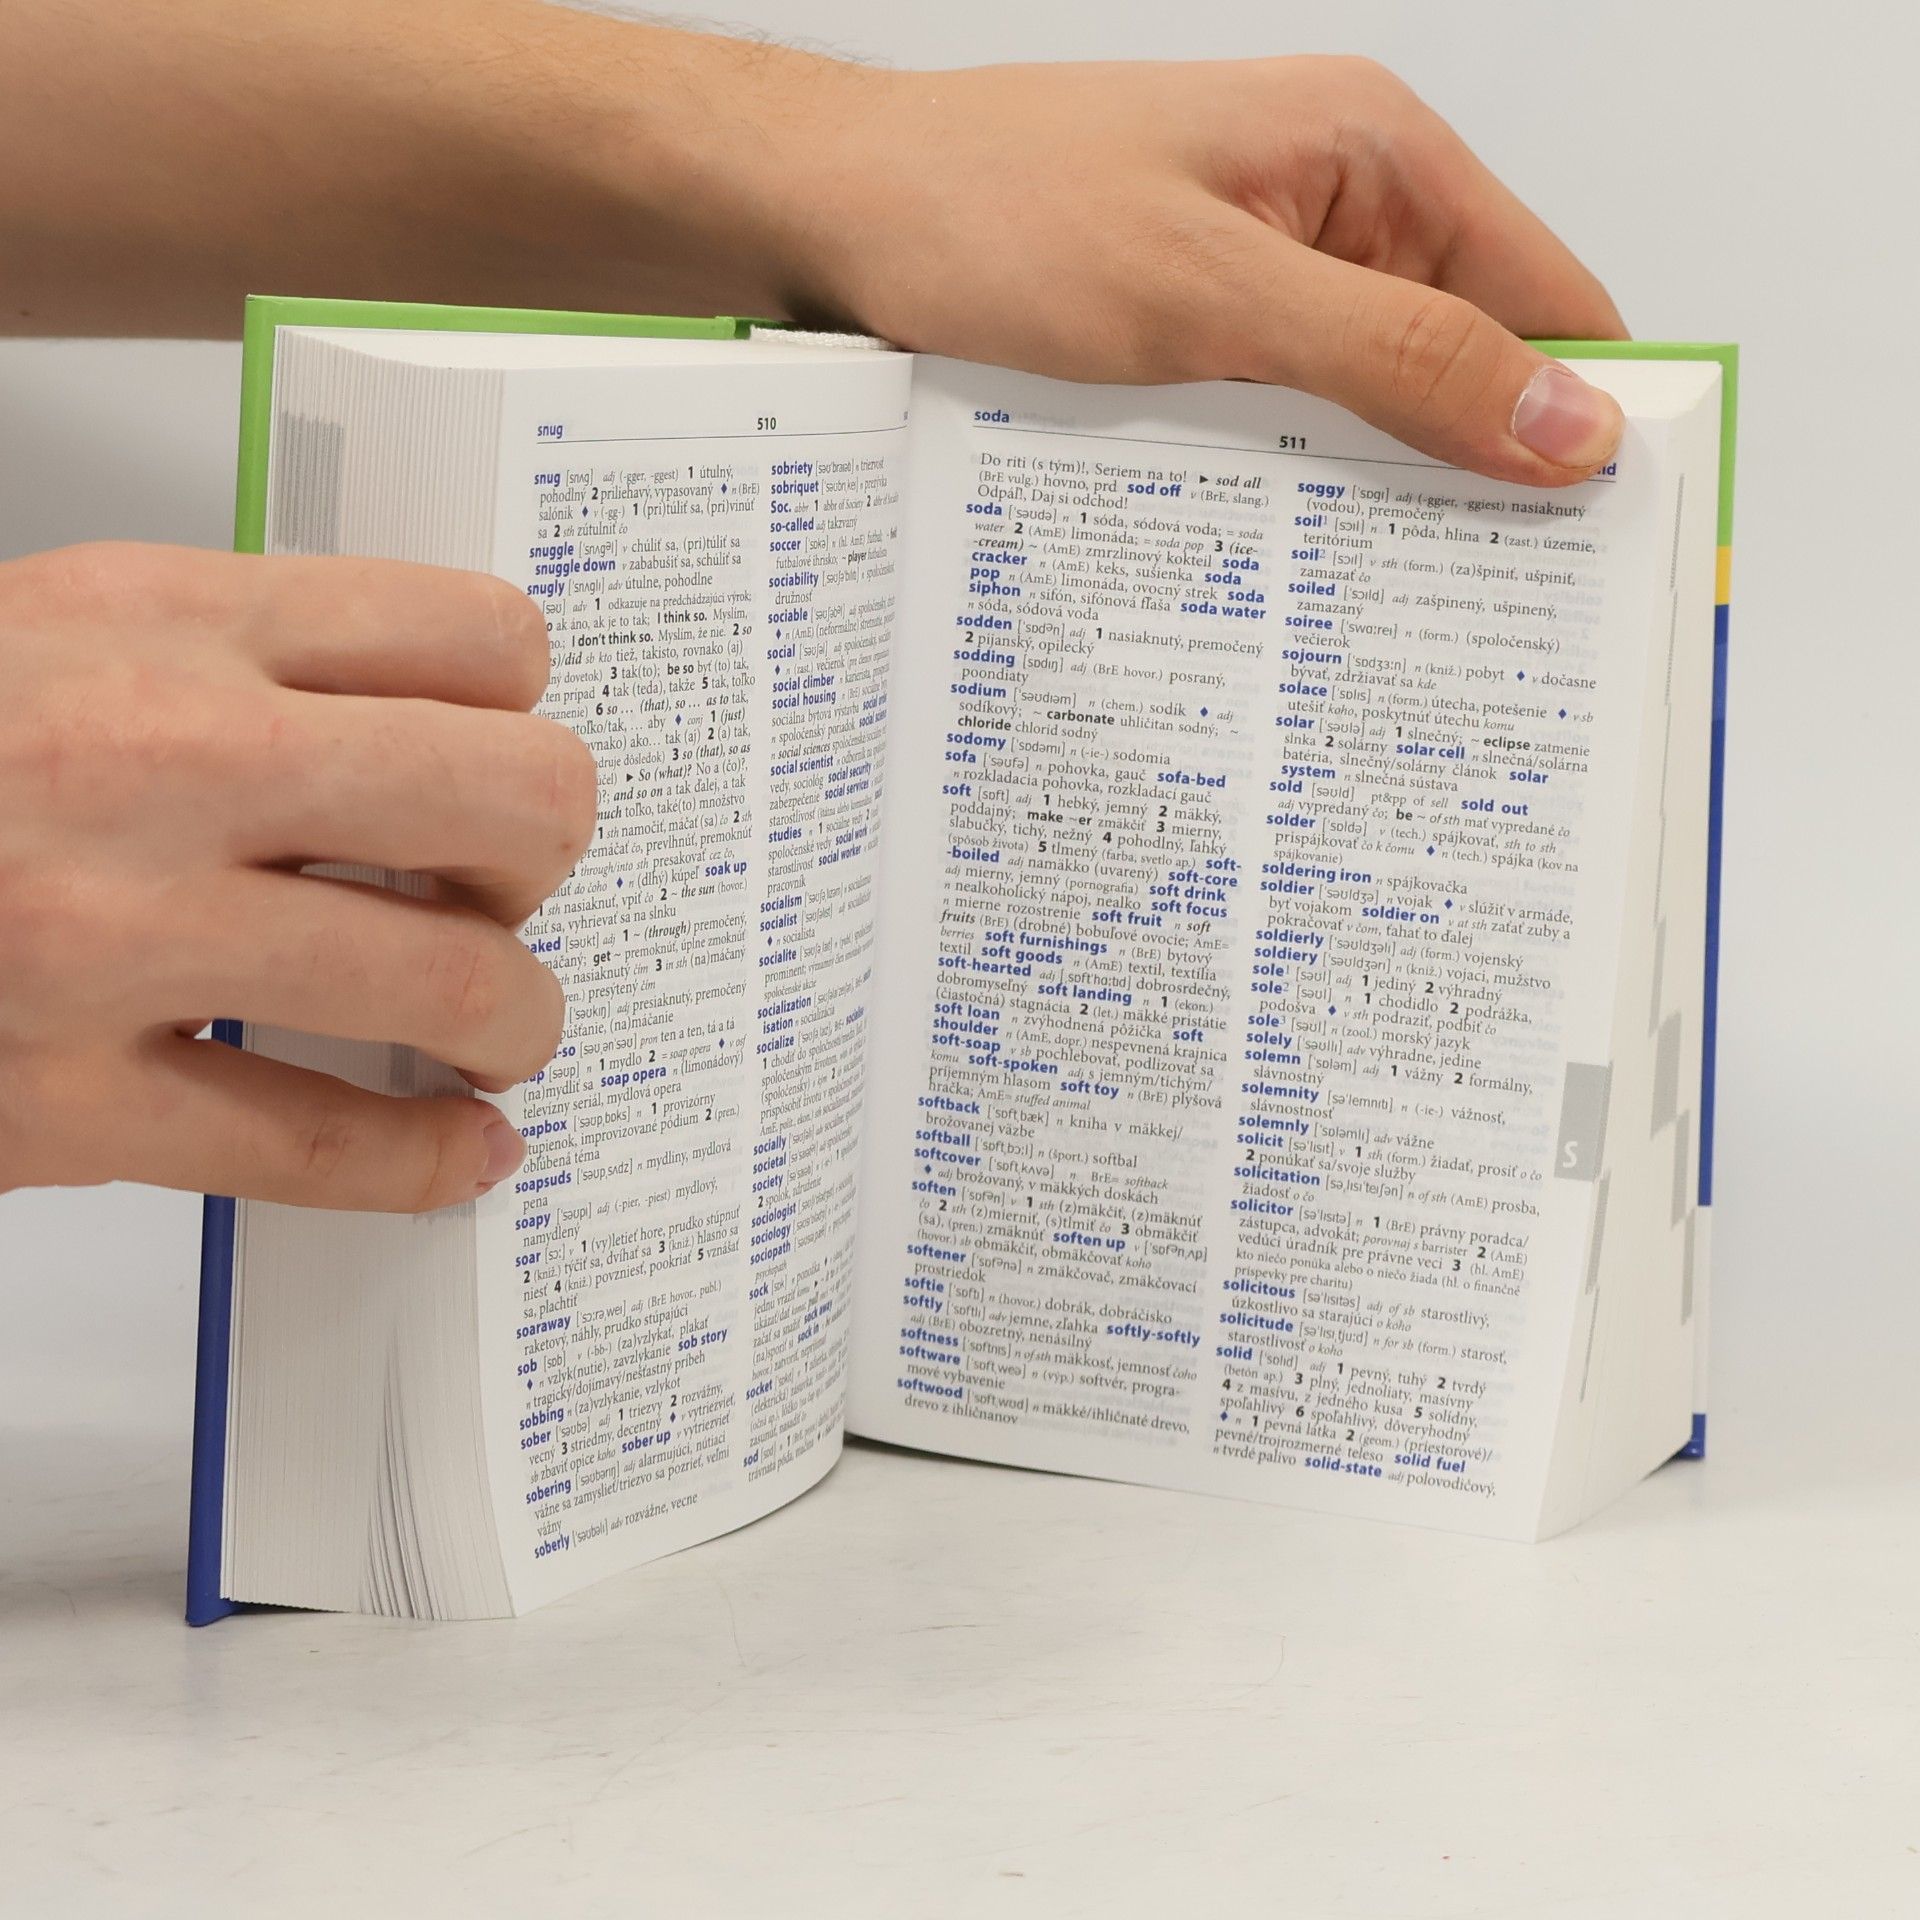 snug
510
snug [snʌg] adj (-gger, -ggest) 1 útulný,
pohodlný 2 priliehavý, vypasovaný ♦ n (BrE)
salónik ♦ v (-gg-) 1 (pri)túliť sa, (pri)vinúť
sa 2 sth zútulniť čo
snuggle [ˈsnʌgəl] v chúliť sa, (pri)túliť sa
snuggle down v zababušiť sa, schúliť sa
snugly [ˈsnʌglɪ] adv útulne, pohodlne
[səʊ] adv 1 odkazuje na predchádzajúci výrok;
ak áno, ak je to tak; I think so. Myslím,
I don't think so. Myslím, že nie. 2 so
did sb kto tiež, takisto, rovnako (aj)
dovetok) 3 tak(to); be so byť (to) tak,
ten prípad 4 tak (teda), takže 5 tak, toľko
6 so … (that), so … as to tak,
toľko/tak, … aby ♦ conj 1 (just)
ako… tak (aj) 2 (a) tak,
dôsledok) 3 so (that), so as
► So (what)? No a (čo)?,
and so on a tak ďalej, a tak
much toľko, také(to) množstvo
1 sth namočiť, máčať (sa) čo 2 sth
premáčať čo, prevlhnúť, premoknúť
through/into sth presakovať cez čo,
do čoho ♦ n (dlhý) kúpeľ soak up
1 sth nasiaknuť, vpiť čo 2 ~ the sun (hovor.)
slniť sa, vyhrievať sa na slnku
[səʊkt] adj 1 ~ (through) premočený,
get ~ premoknúť, úplne zmoknúť
nasiaknutý čím 3 in sth (na)máčaný
presýtený čím
[ˈsəʊkɪŋ] adj presiaknutý, premočený
(na)máčanie
[səʊˌənˈsəʊ] pron ten a ten, tá a tá
[səʊp] n 1 mydlo 2 = soap opera ♦ v
(na)mydliť sa soap opera n (limonádový)
televízny seriál, mydlová opera
soapbox [ˈsəʊpˌbɒks] n 1 provizórny
stupienok, improvizované pódium 2 (pren.)
obľúbená téma
soapsuds [ˈsəʊpˌsʌdz] n mydliny, mydlová
pena
soapy [ˈsəʊpɪ] adj (-pier, -piest) mydlový,
namydlený
soar [sɔː] v 1 (vy)letieť hore, prudko stúpnuť
2 (kniž.) týčiť sa, dvíhať sa 3 (kniž.) hlasno sa
niesť 4 (kniž.) povzniesť, pookriať 5 vznášať
sa, plachtiť
soaraway [ˈsɔːrəˌweɪ] adj (BrE hovor., publ.)
raketový, náhly, prudko stúpajúci
sob [sɒb] v (-bb-) (za)vzlykať, plakať
♦ n vzlyk(nutie), zavzlykanie sob story
n tragický/dojímavý/nešťastný príbeh
sobbing n (za)vzlykanie, vzlykot
sober [ˈsəʊbə] adj 1 triezvy 2 rozvážny,
vecný 3 striedmy, decentný ♦ v vytriezvieť,
sb zbaviť opice koho sober up v vytriezvieť
sobering [ˈsəʊbərɪŋ] adj alarmujúci, nútiaci
vážne sa zamyslieť/triezvo sa pozrieť, veľmi
vážny
soberly [ˈsəʊbəlɪ] adv rozvážne, vecne
sobriety [səʊˈbraɪətɪ] n triezvosť
sobriquet [ˈsəʊbrɪˌkeɪ] n prezývka
Soc. abbr 1 abbr of Society 2 abbr of
so-called adj takzvaný
soccer [ˈsɒkə] n (hl. AmE) futbal
futbalové ihrisko; ~ player futbalista
sociability [ˌsəʊʃəˈbɪlɪtɪ] n spoločenskosť,
družnosť
sociable [ˈsəʊʃəbəl] adj spoločenský,
♦ n (AmE) (neformálne) stretnutie,
social [ˈsəʊʃəl] adj spoločenský,
♦ n (zast.) večierok
social climber n kariérista,
social housing n (BrE) sociálne
sociálna bytová výstavba social
n spoločenský poriadok social
n social sciences spoločenské
social scientist n odborník na
vedy, sociológ social security
zabezpečenie social services
starostlivosť
studies n 1 sociálne vedy 2
spoločenské vedy social work
starostlivosť social worker n
pracovník
socialism [ˈsəʊʃəˌlɪzəm] n socializmus
socialist [ˈsəʊʃəlɪst] adj socialistický
♦ n socialista
socialite [ˈsəʊʃəˌlaɪt] n
prominent;
spoločenské akcie
socialization
isation n socializácia
socialize [ˈsəʊʃəˌlaɪz]
1 chodiť do spoločnosti
socially
societal
society
2 spolok, združenie
sociologist
sociology
sociopath
psychopath
sock [sɒk] n ponožka
socket
sod [sɒd] n 1
soda
511
Do riti (s tým)!, Seriem na to! ► sod all
(BrE vulg.) hovno, prd sod off v (BrE, slang.)
Odpáľ!, Daj si odchod!
soda [ˈsəʊdə] n 1 sóda, sódová voda; = soda
water 2 (AmE) limonáda; = soda pop 3 (ice-
-cream) ~ (AmE) zmrzlinový kokteil soda
cracker n (AmE) keks, sušienka soda
pop n (AmE) limonáda, ovocný strek soda
siphon n sifón, sifónová fľaša soda water
n sóda, sódová voda
sodden [ˈsɒdən] adj 1 nasiaknutý, premočený
2 pijanský, opilecký
sodding [ˈsɒdɪŋ] adj (BrE hovor.) posraný,
poondiaty
sodium [ˈsəʊdɪəm] n (chem.) sodík ♦ adj
sodíkový; ~ carbonate uhličitan sodný; ~
chloride chlorid sodný
sodomy [ˈsɒdəmɪ] n (-ie-) sodomia
sofa [ˈsəʊfə] n pohovka, gauč sofa-bed
n rozkladacia pohovka, rozkladací gauč
soft [sɒft] adj 1 hebký, jemný 2 mäkký,
poddajný; make ~er zmäkčiť 3 mierny,
slabučký, tichý, nežný 4 pohodlný, ľahký
(spôsob života) 5 tlmený (farba, svetlo ap.) soft-
-boiled adj namäkko (uvarený) soft-core
adj mierny, jemný (pornografia) soft drink
n nealkoholický nápoj, nealko soft focus
n mierne rozostrenie soft fruit n soft
fruits (BrE) (drobné) bobuľové ovocie; AmE=
berries soft furnishings n (BrE) bytový
textil soft goods n (AmE) textil, textília
soft-hearted adj [ˌsɒftˈhɑːtɪd] dobrosrdečný,
dobromyseľný soft landing n 1 (ekon.)
(čiastočná) stagnácia 2 (let.) mäkké pristátie
soft loan n zvýhodnená pôžička soft
shoulder n (AmE, dopr.) nespevnená krajnica
soft-soap v sb pochlebovať, podlizovať sa
komu soft-spoken adj s jemným/tichým/
príjemným hlasom soft toy n (BrE) plyšová
hračka; AmE= stuffed animal
softback [ˈsɒftˌbæk] n kniha v mäkkej/
brožovanej väzbe
softball [ˈsɒftˌbɔːl] n (šport.) softbal
softcover [ˈsɒftˌkʌvə] n BrE= softback
♦ adj brožovaný, v mäkkých doskách
soften [ˈsɒfən] v 1 sth (z)mäkčiť, (z)mäknúť
čo 2 sth (z)mierniť, (s)tlmiť čo 3 obmäkčiť
(sa), (pren.) zmäknúť soften up v [ˈsɒfənˌʌp]
(hovor.) sb obmäkčiť, obmäkčovať koho
softener [ˈsɒfənə] n zmäkčovač, zmäkčovací
prostriedok
softie [ˈsɒftɪ] n (hovor.) dobrák, dobráčisko
softly [ˈsɒftlɪ] adv jemne, zľahka softly-softly
adj (BrE) obozretný, nenásilný
softness [ˈsɒftnɪs] n of sth mäkkosť, jemnosť čoho
software [ˈsɒftˌweə] n (výp.) softvér, progra-
mové vybavenie
softwood [ˈsɒftˌwʊd] n mäkké/ihličnaté drevo,
drevo z ihličnanov
soggy [ˈsɒgɪ] adj (-ggier, -ggiest) nasiaknutý
(vodou), premočený
soil¹ [sɔɪl] n 1 pôda, hlina 2 (zast.) územie,
teritórium
soil² [sɔɪl] v sth (form.) (za)špiniť, ušpiniť,
zamazať čo
soiled [ˈsɔɪld] adj zašpinený, ušpinený,
zamazaný
soiree [ˈswɑːreɪ] n (form.) (spoločenský)
večierok
sojourn [ˈsɒdʒɜːn] n (kniž.) pobyt ♦ v dočasne
bývať, zdržiavať sa kde
solace [ˈsɒlɪs] n (form.) útecha, potešenie ♦ v sb
utešiť koho, poskytnúť útechu komu
solar [ˈsəʊlə] adj 1 slnečný; ~ eclipse zatmenie
slnka 2 solárny solar cell n slnečná/solárna
batéria, slnečný/solárny článok solar
system n slnečná sústava
sold [səʊld] pt&pp of sell sold out
adj vypredaný čo; be ~ of sth mať vypredané čo
solder [ˈsɒldə] v (tech.) spájkovať, sth to sth
prispájkovať čo k čomu ♦ n (tech.) spájka (kov na
spájkovanie)
soldering iron n spájkovačka
soldier [ˈsəʊldʒə] n vojak ♦ v slúžiť v armáde,
byť vojakom soldier on v at sth zaťať zuby a
pokračovať v čom, ťahať to ďalej
soldierly [ˈsəʊldʒəlɪ] adj (form.) vojenský
soldiery [ˈsəʊldʒərɪ] n (kniž.) vojaci, mužstvo
sole¹ [səʊl] adj 1 jediný 2 výhradný
sole² [səʊl] n 1 chodidlo 2 podrážka,
podošva ♦ v sth podraziť, podbiť čo
sole³ [səʊl] n (zool.) morský jazyk
solely [ˈsəʊllɪ] adv výhradne, jedine
solemn [ˈsɒləm] adj 1 vážny 2 formálny,
slávnostný
solemnity [səˈlemnɪtɪ] n (-ie-) vážnosť,
slávnostnosť
solemnly [ˈsɒləmlɪ] adv vážne
solicit [səˈlɪsɪt] v 1 sth (form.) žiadať, prosiť o čo
2 ponúkať sa/svoje služby
solicitation [səˌlɪsɪˈteɪʃən] n of sth (AmE) prosba,
žiadosť o čo
solicitor [səˈlɪsɪtə] n 1 (BrE) právny poradca/
zástupca, advokát; porovnaj s barrister 2 (AmE)
vedúci úradník pre právne veci 3 (hl. AmE)
kto niečo ponúka alebo o niečo žiada (hl. o finančné
príspevky pre charitu)
solicitous [səˈlɪsɪtəs] adj of sb starostlivý,
úzkostlivo sa starajúci o koho
solicitude [səˈlɪsɪˌtjuːd] n for sb (form.) starosť,
starostlivosť o koho
solid [ˈsɒlɪd] adj 1 pevný, tuhý 2 tvrdý
(betón ap.) 3 plný, jednoliaty, masívny
4 z masívu, z jedného kusa 5 solídny,
spoľahlivý 6 spoľahlivý, dôveryhodný
♦ n 1 pevná látka 2 (geom.) (priestorové)/
pevné/trojrozmerné teleso solid fuel
n tvrdé palivo solid-state adj polovodičový,
S